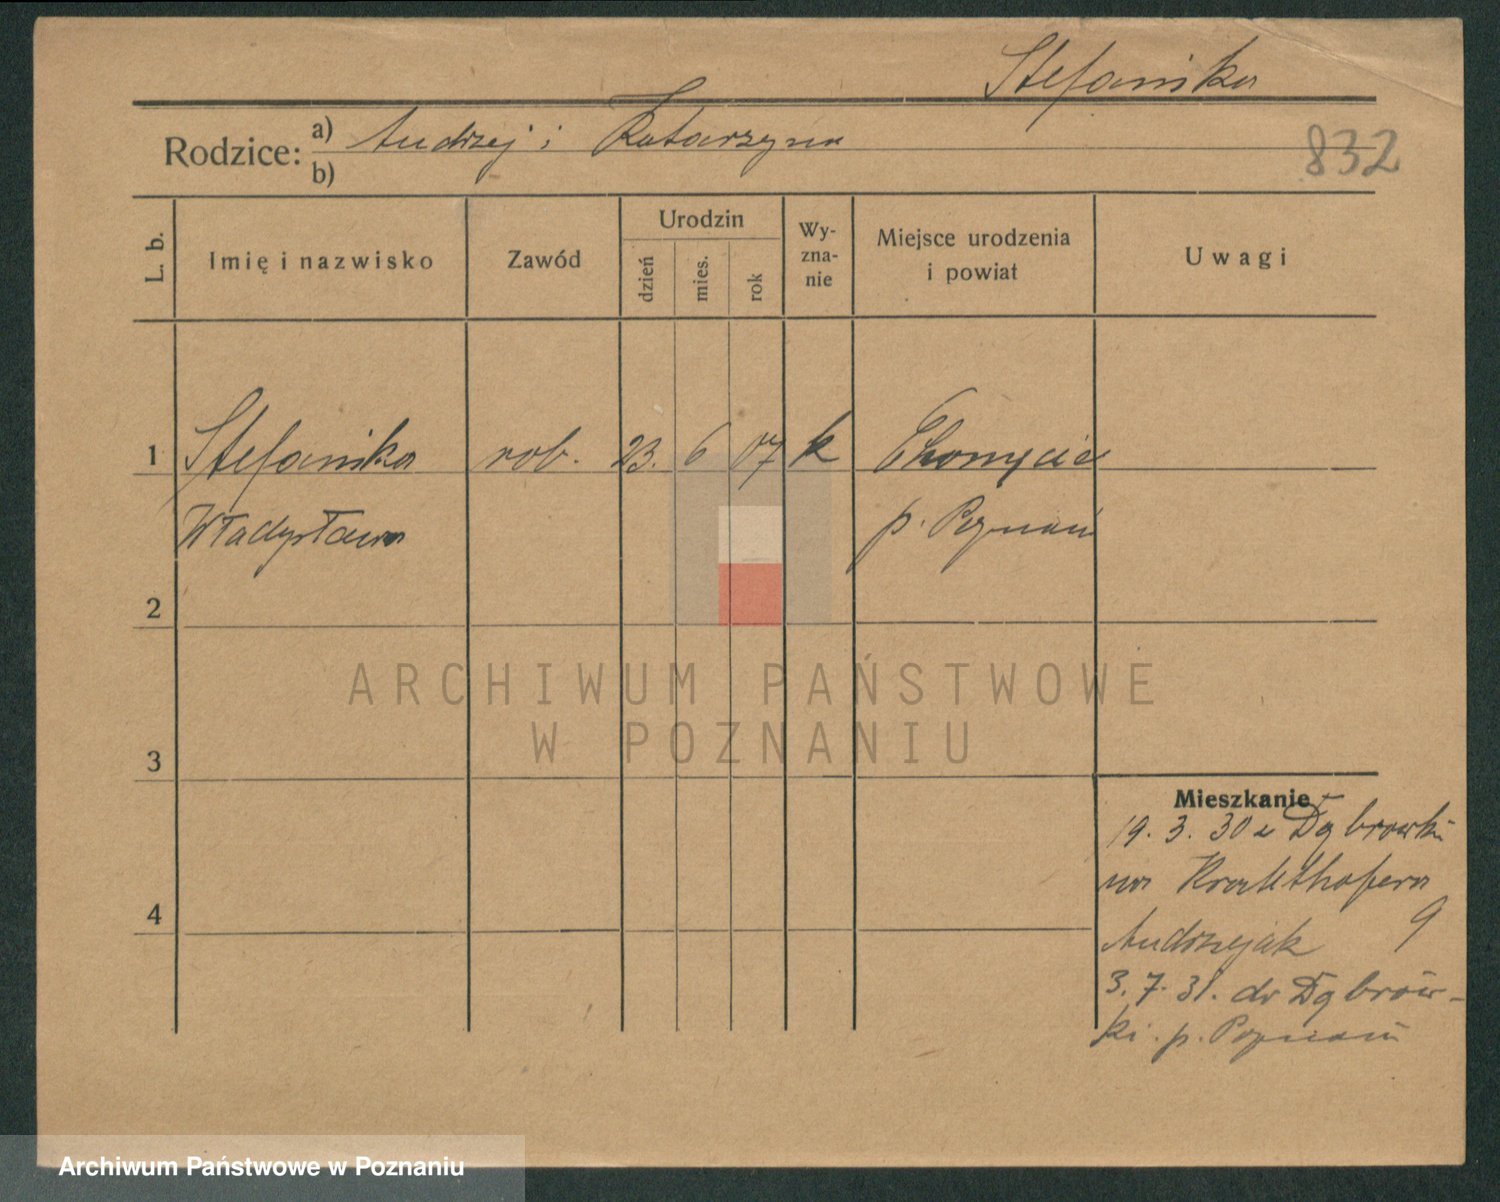 Stefanika
Rodzice: a) Andrzej i Katarzyna
b)
832
L. b.
Imię i nazwisko
Zawód
Urodzin
dzień
mies.
rok
Wy-
zna-
nie
Miejsce urodzenia
i powiat
Uwagi
1 Stefanika rob. 23. 6 07 k Chomęcice
Władysława p. Poznań
2
ARCHIWUM PAŃSTWOWE
W POZNANIU
3
Mieszkanie
19. 3. 30 z Dąbrówki
na Krauthofera
4
9
Andrzejak
3. 7. 31. do Dąbrów-
ki. p. Poznań
Archiwum Państwowe w Poznaniu